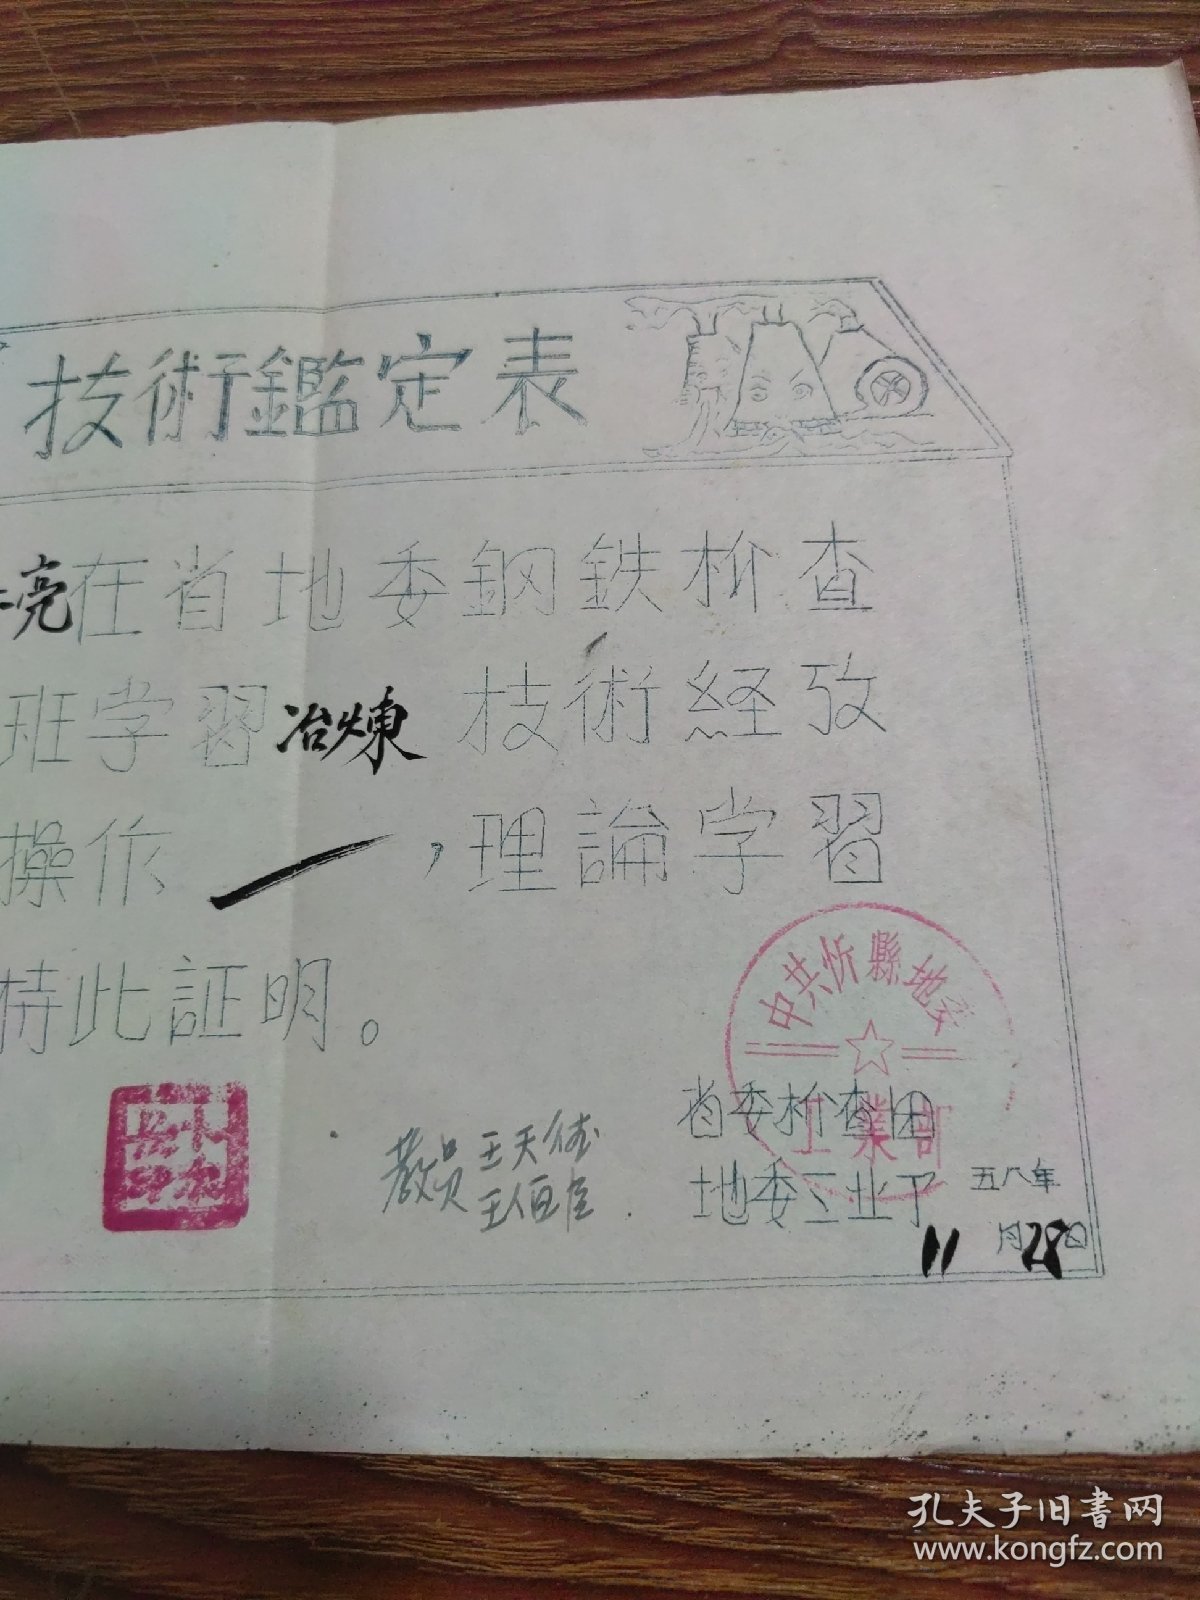 技術鑑定表
亮在省地委鋼鉄检查
班学習冶煉技術経攷
操作一，理論学習
特此証明。
中共忻縣地委
工業部
教員王天
省委检查团
地委工业下
五八年
11月28日
孔夫子旧書网
www.kongfz.com